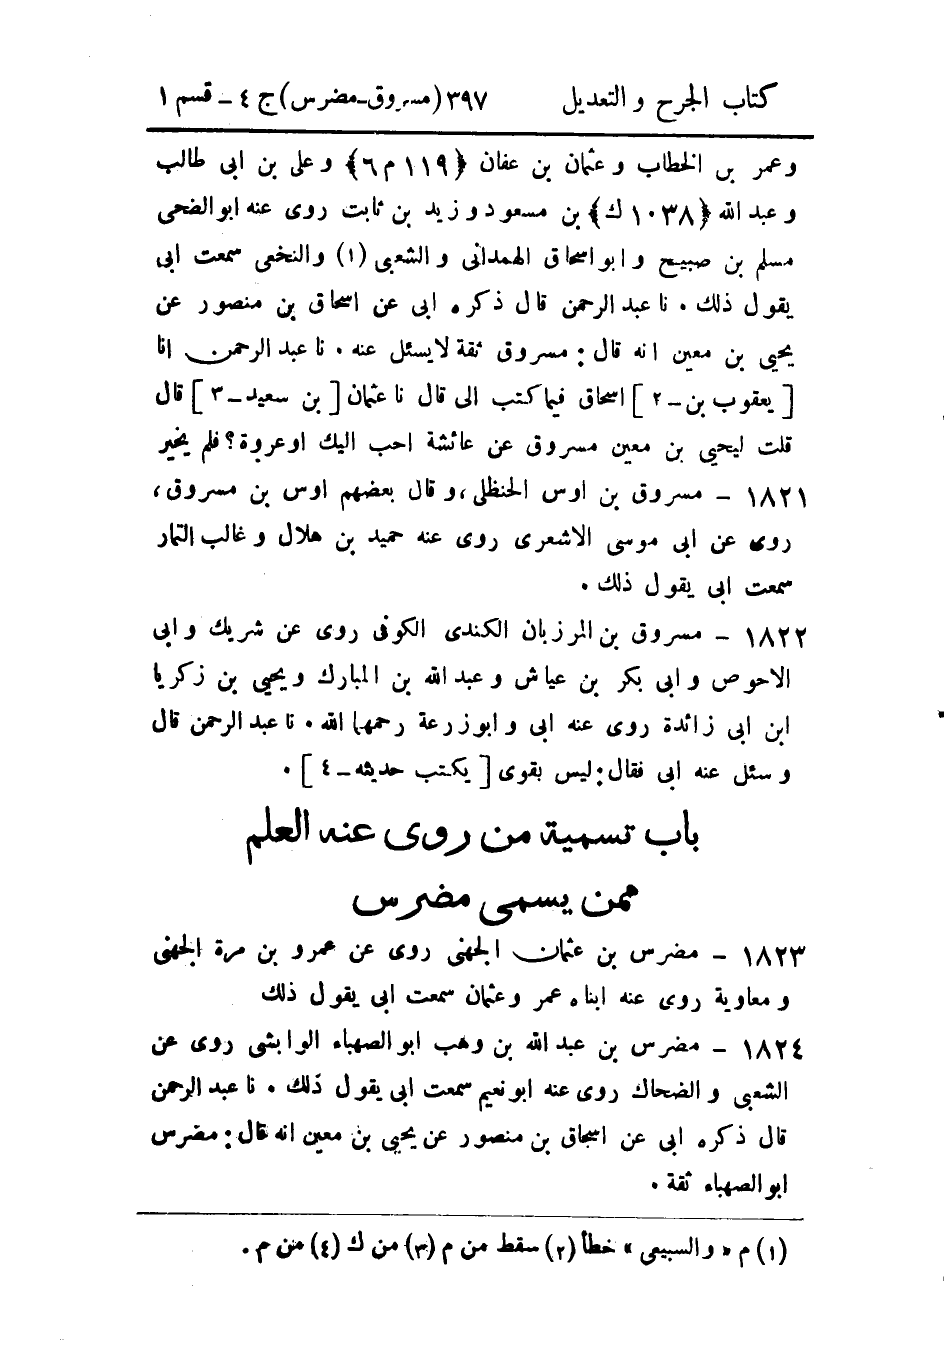 كتاب الجرح و التعديل ٣٩٧ (مسروق-مضرس) ج ٤ – قسم ١
وعمر بن الخطاب و عثمان بن عفان ﴿١١٩ م ٦﴾ و على بن ابى طالب
و عبد الله ﴿١٠٣٨ ك﴾ بن مسعود و زيد بن ثابت روى عنه ابو الضحى
مسلم بن صبيح و ابو اسحاق الهمدانى و الشعبى (١) والنخعى سمعت ابى
يقول ذلك . نا عبد الرحمن قال ذكره ابى عن اسحاق بن منصور عن
يحيى بن معين انه قال: مسروق ثقة لا يسئل عنه . نا عبد الرحمن انا
[ يعقوب بن – ٢ ] اسحاق فيما كتب الى قال نا عثمان [ بن سعيد – ٣ ] قال
قلت ليحيى بن معين مسروق عن عائشة احب اليك او عروة؟ فلم يخير
١٨٢١ – مسروق بن اوس الحنظلى، و قال بعضهم اوس بن مسروق،
روى عن ابى موسى الاشعرى روى عنه حميد بن هلال و غالب التمار
سمعت ابى يقول ذلك .
١٨٢٢ – مسروق بن المرزبان الكندى الكوفى روى عن شريك و ابى
الاحوص و ابى بكر بن عياش و عبد الله بن المبارك و يحيى بن زكريا
ابن ابى زائدة روى عنه ابى و ابو زرعة رحمهما الله . نا عبد الرحمن قال
و سئل عنه ابى فقال: ليس بقوى [ يكتب حديثه – ٤ ] .
باب تسمية من روى عنه العلم
ممن يسمى مضرس
١٨٢٣ – مضرس بن عثمان الجهنى روى عن عمرو بن مرة الجهنى
و معاوية روى عنه ابناه عمر وعثمان سمعت ابى يقول ذلك
١٨٢٤ – مضرس بن عبد الله بن وهب ابو الصهباء الوابشى روى عن
الشعبى و الضحاك روى عنه ابو نعيم سمعت ابى يقول ذلك . نا عبد الرحمن
قال ذكره ابى عن اسحاق بن منصور عن يحيى بن معين انه قال: مضرس
ابو الصهباء ثقة .
(١) م « والسبيعى » خطأ (٢) سقط من م (٣) من ك (٤) من م .